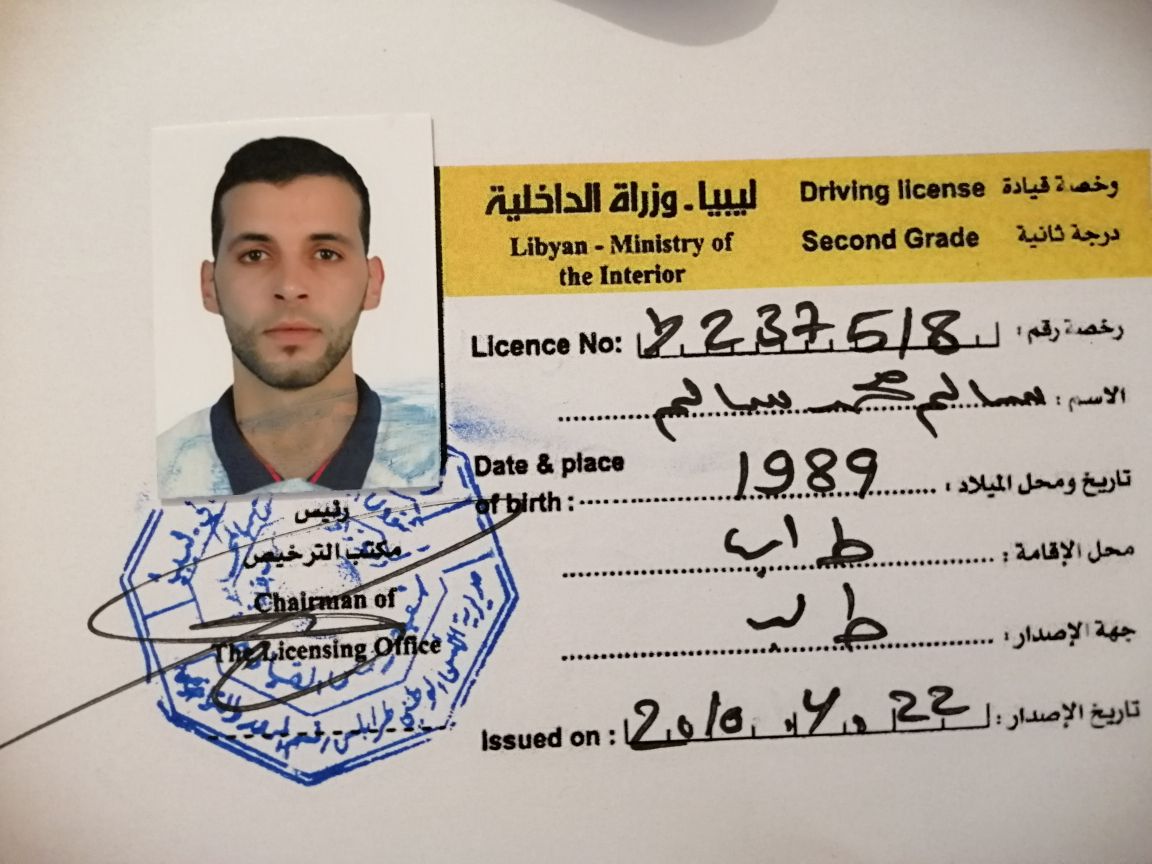 ليبيا - وزراة الداخلية
Libyan - Ministry of
the Interior
Driving license وخصة قيادة
Second Grade درجة ثانية
Licence No: 2237518 رخصة رقم :
الاسم : سالم محمد سالم
Date & place
of birth : 1989 تاريخ ومحل الميلاد :
محل الإقامة :
جهة الإصدار :
Issued on : 2010.4.22 تاريخ الإصدار :
رئيس
مكتب الترخيص
Chairman of
The Licensing Office